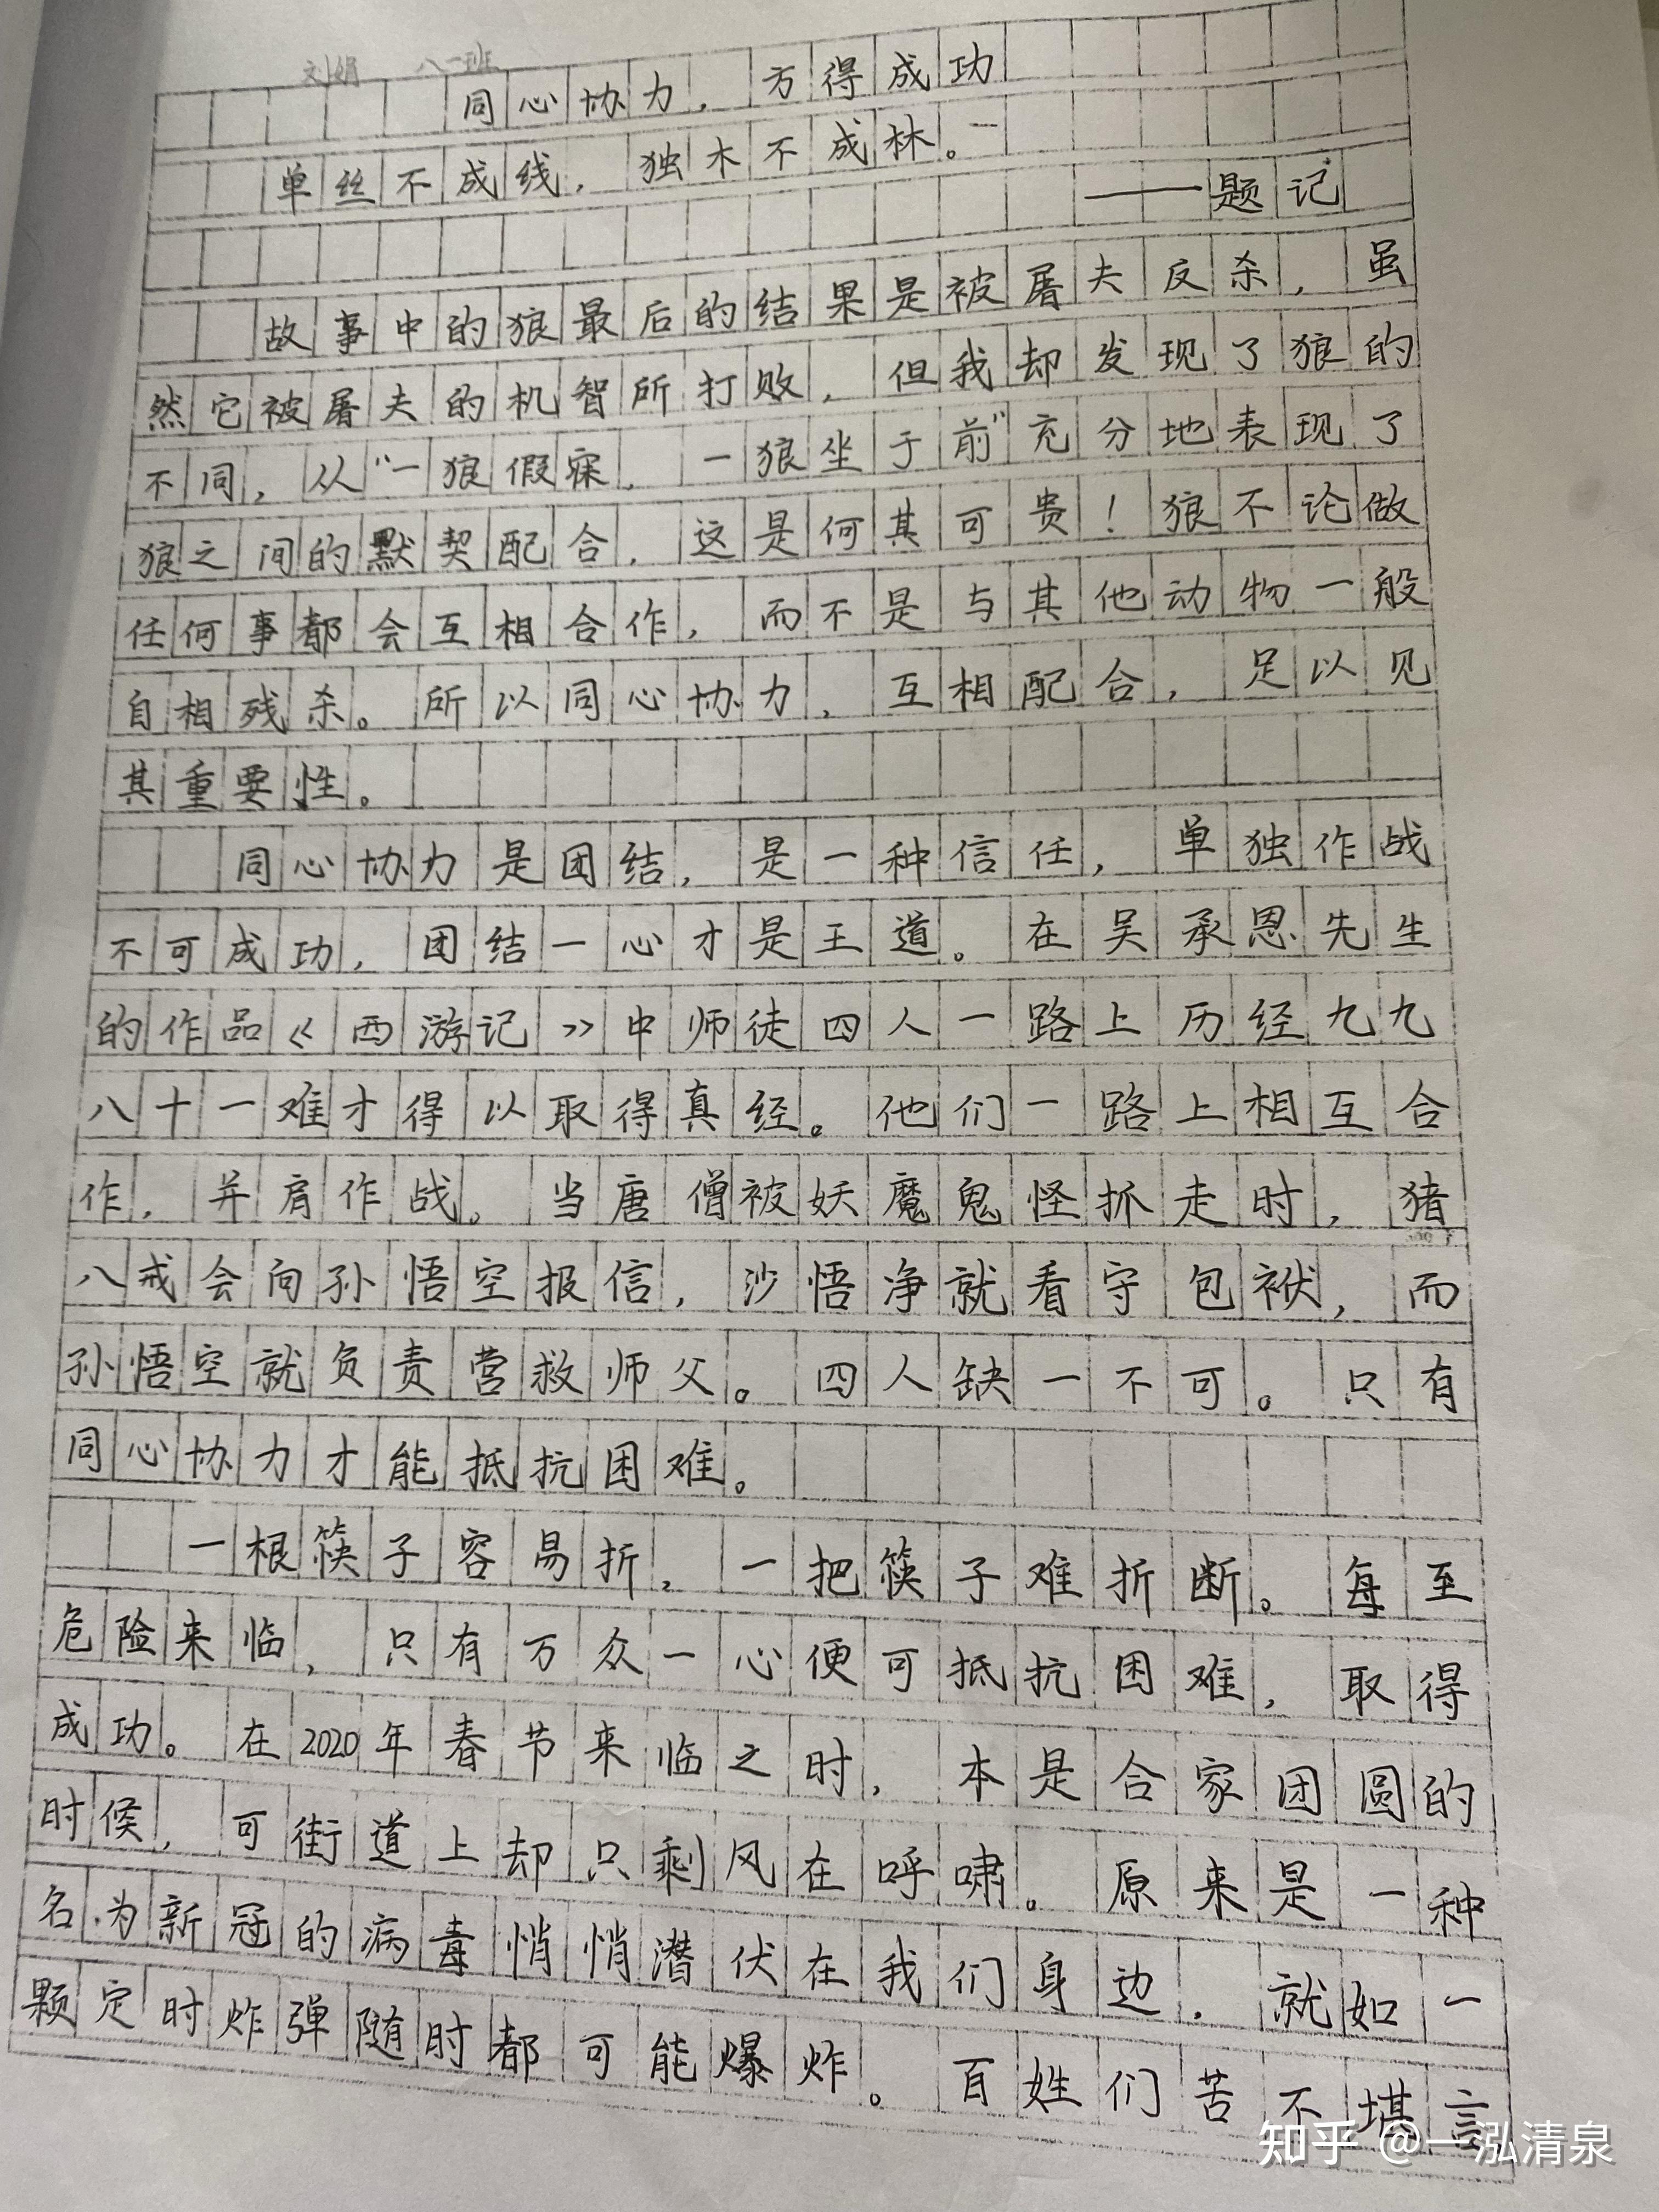 刘娟 八一班
同心协力，方得成功
单丝不成线，独木不成林。
——题记
故事中的狼最后的结果是被屠夫反杀，虽
然它被屠夫的机智所打败，但我却发现了狼的
不同，从“一狼假寐，一狼坐于前”充分地表现了
狼之间的默契配合，这是何其可贵！狼不论做
任何事都会互相合作，而不是与其他动物一般
自相残杀。所以同心协力，互相配合，足以见
其重要性。
同心协力是团结，是一种信任，单独作战
不可成功，团结一心才是王道。在吴承恩先生
的作品《西游记》中师徒四人一路上历经九九
八十一难才得以取得真经。他们一路上相互合
作，并肩作战。当唐僧被妖魔鬼怪抓走时，猪
八戒会向孙悟空报信，沙悟净就看守包袱，而
孙悟空就负责营救师父。四人缺一不可。只有
同心协力才能抵抗困难。
一根筷子容易折，一把筷子难折断。每至
危险来临，只有万众一心便可抵抗困难，取得
成功。在2020年春节来临之时，本是合家团圆的
时候，可街道上却只剩风在呼啸。原来是一种
名为新冠的病毒悄悄潜伏在我们身边，就如一
颗定时炸弹随时都可能爆炸。百姓们苦不堪言
知乎 @一泓清泉